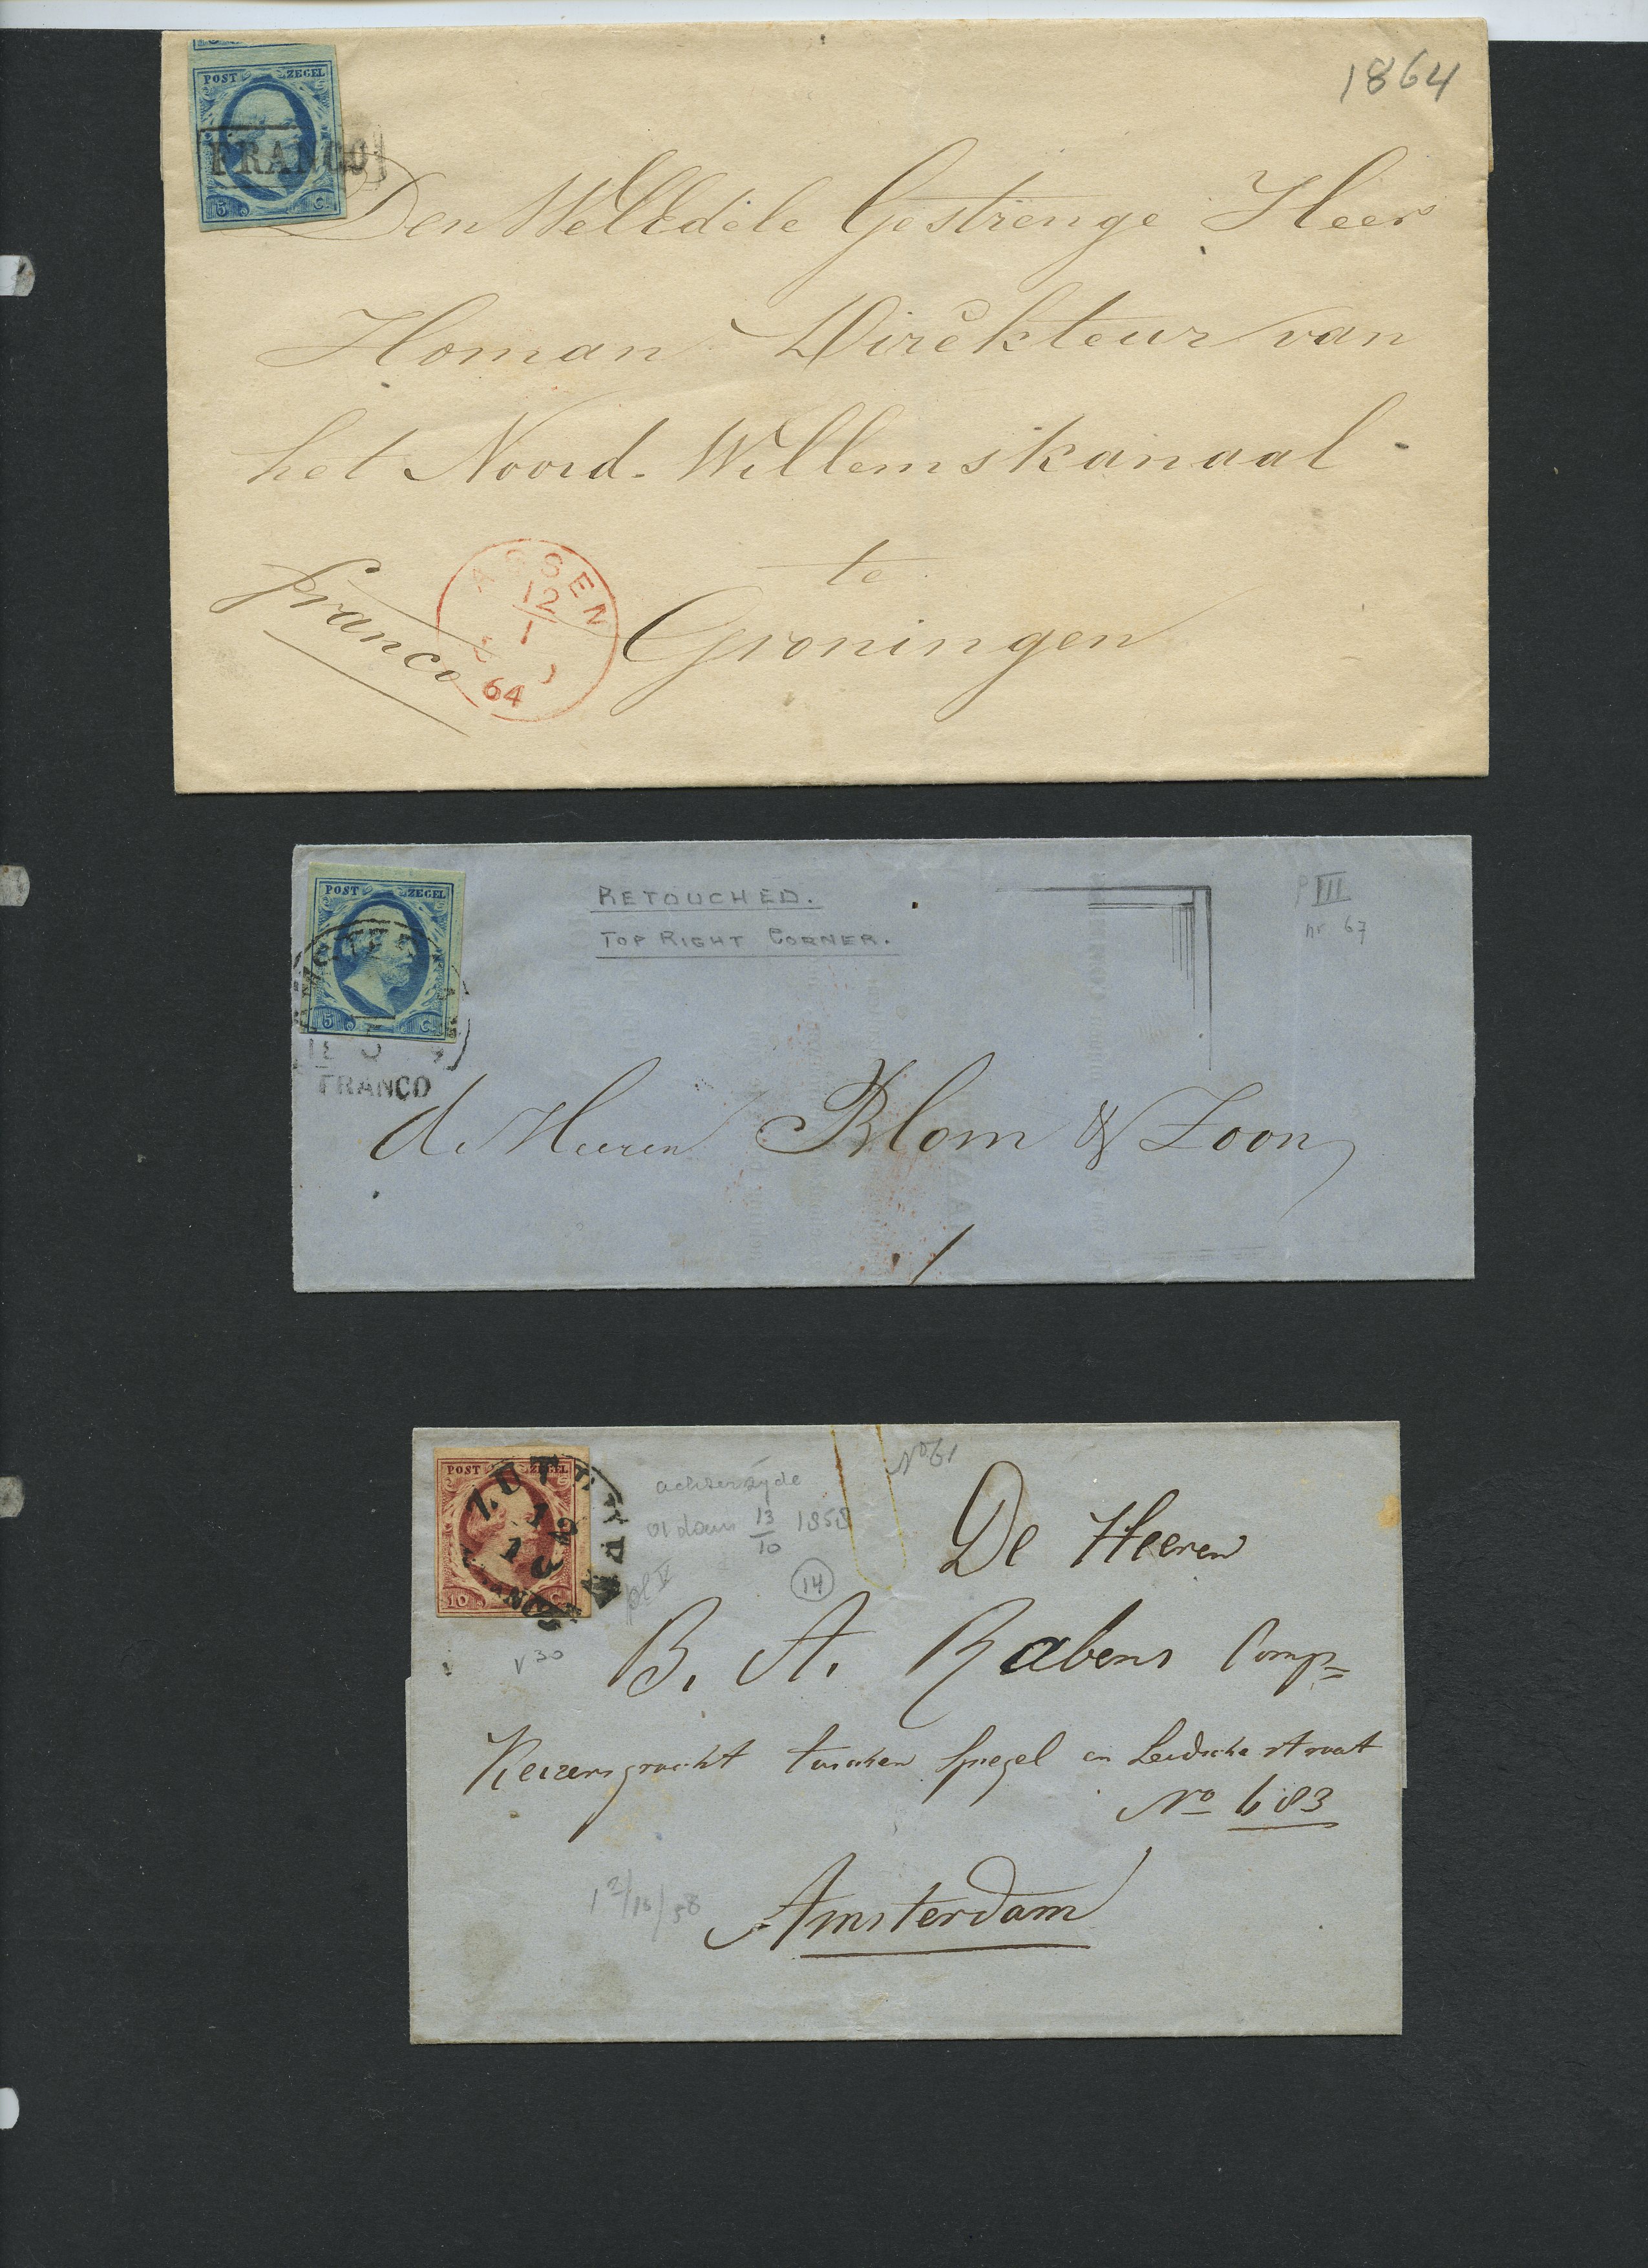 1864
POST ZEGEL
FRANCO
5 C.
Den WelEdele Gestrenge Heer
Homan Direkteur van
het Noord-Willemskanaal
te
Groningen
franco
ASSEN
12
1
64
RETOUCHED.
TOP RIGHT CORNER.
P III
nr 67
POST ZEGEL
5 C.
FRANCO
de Heeren Blom & Zoon
POST ZEGEL
10 C.
ZUTPHEN
12
10
achterzijde
13/10 1858
14
pl V
V 30
No 61
De Heeren
B. A. Rabens Comp
Keizersgracht tusschen Spiegel en Leidsche straat
No 683
Amsterdam
12/10/58